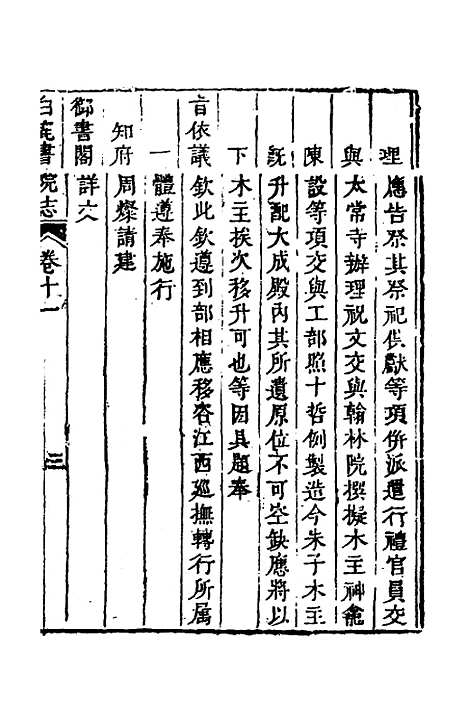 理應告祭其祭祀供獻等項併派遣行禮官員交
與太常寺辦理祝文交與翰林院撰擬木主神龕
陳設等項交與工部照十哲例製造今朱子木主
旣升配大成殿內其所遺原位不可空缺應將以
下木主挨次移升可也等因具題奉
旨依議欽此欽遵到部相應移咨江西巡撫轉行所屬
一體遵奉施行
知府周燦請建
御書閣詳文
白鹿書院志 卷十一 三